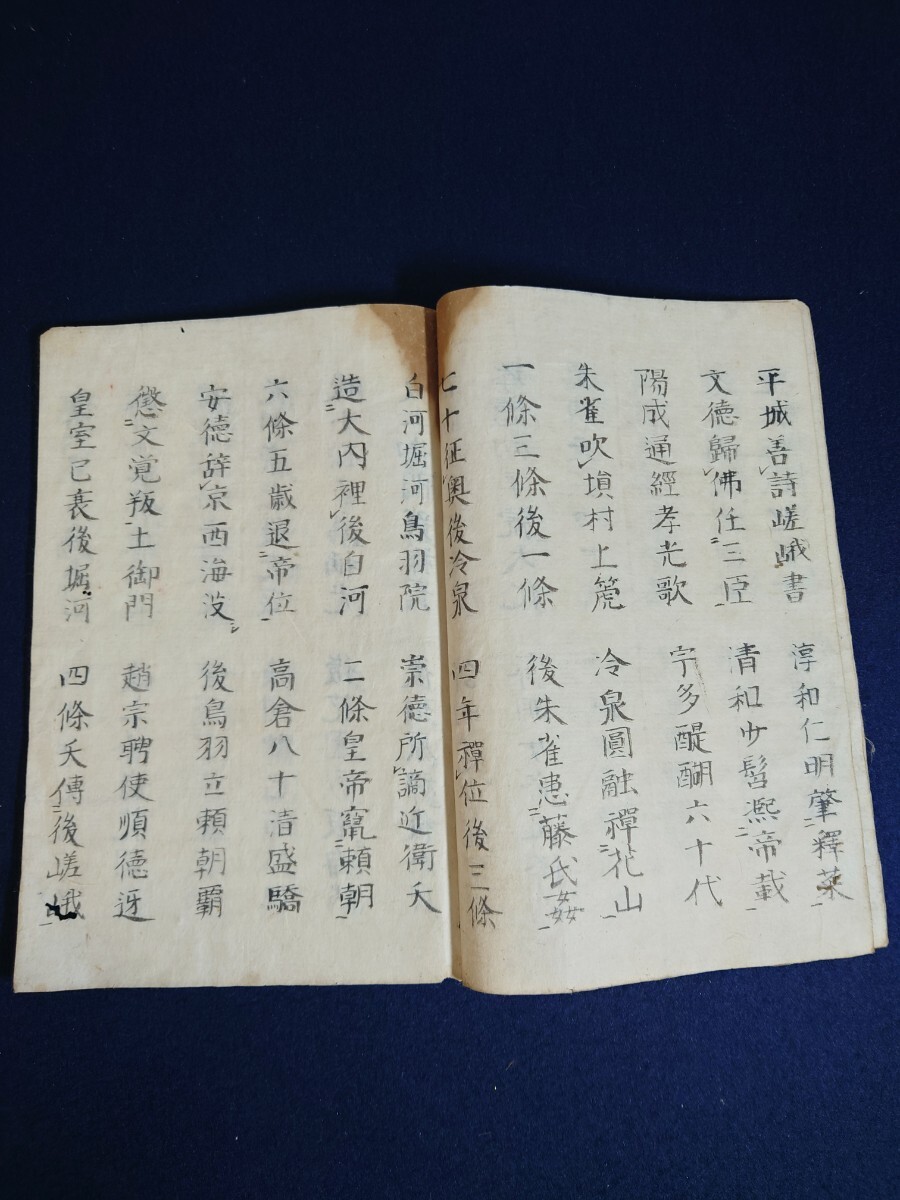 平城善詩嵯峨書　淳和仁明肇釋菜
文徳歸佛任三臣　清和少髫熈帝載
陽成通經孝光歌　宇多醍醐六十代
朱雀吹塤村上篪　冷泉圓融禪花山
一條三條後一條　後朱雀患藤氏姦
七十征奥後冷泉　四年禪位後三條
白河堀河鳥羽院　崇徳所謫近衛夭
造大内裡後白河　二條皇帝竄頼朝
六條五歳退帝位　高倉八十清盛驕
安徳辞京西海没　後鳥羽立頼朝覇
懲文覚叛土御門　趙宗聘使順徳迓
皇室已衰後堀河　四條夭傳後嵯峨